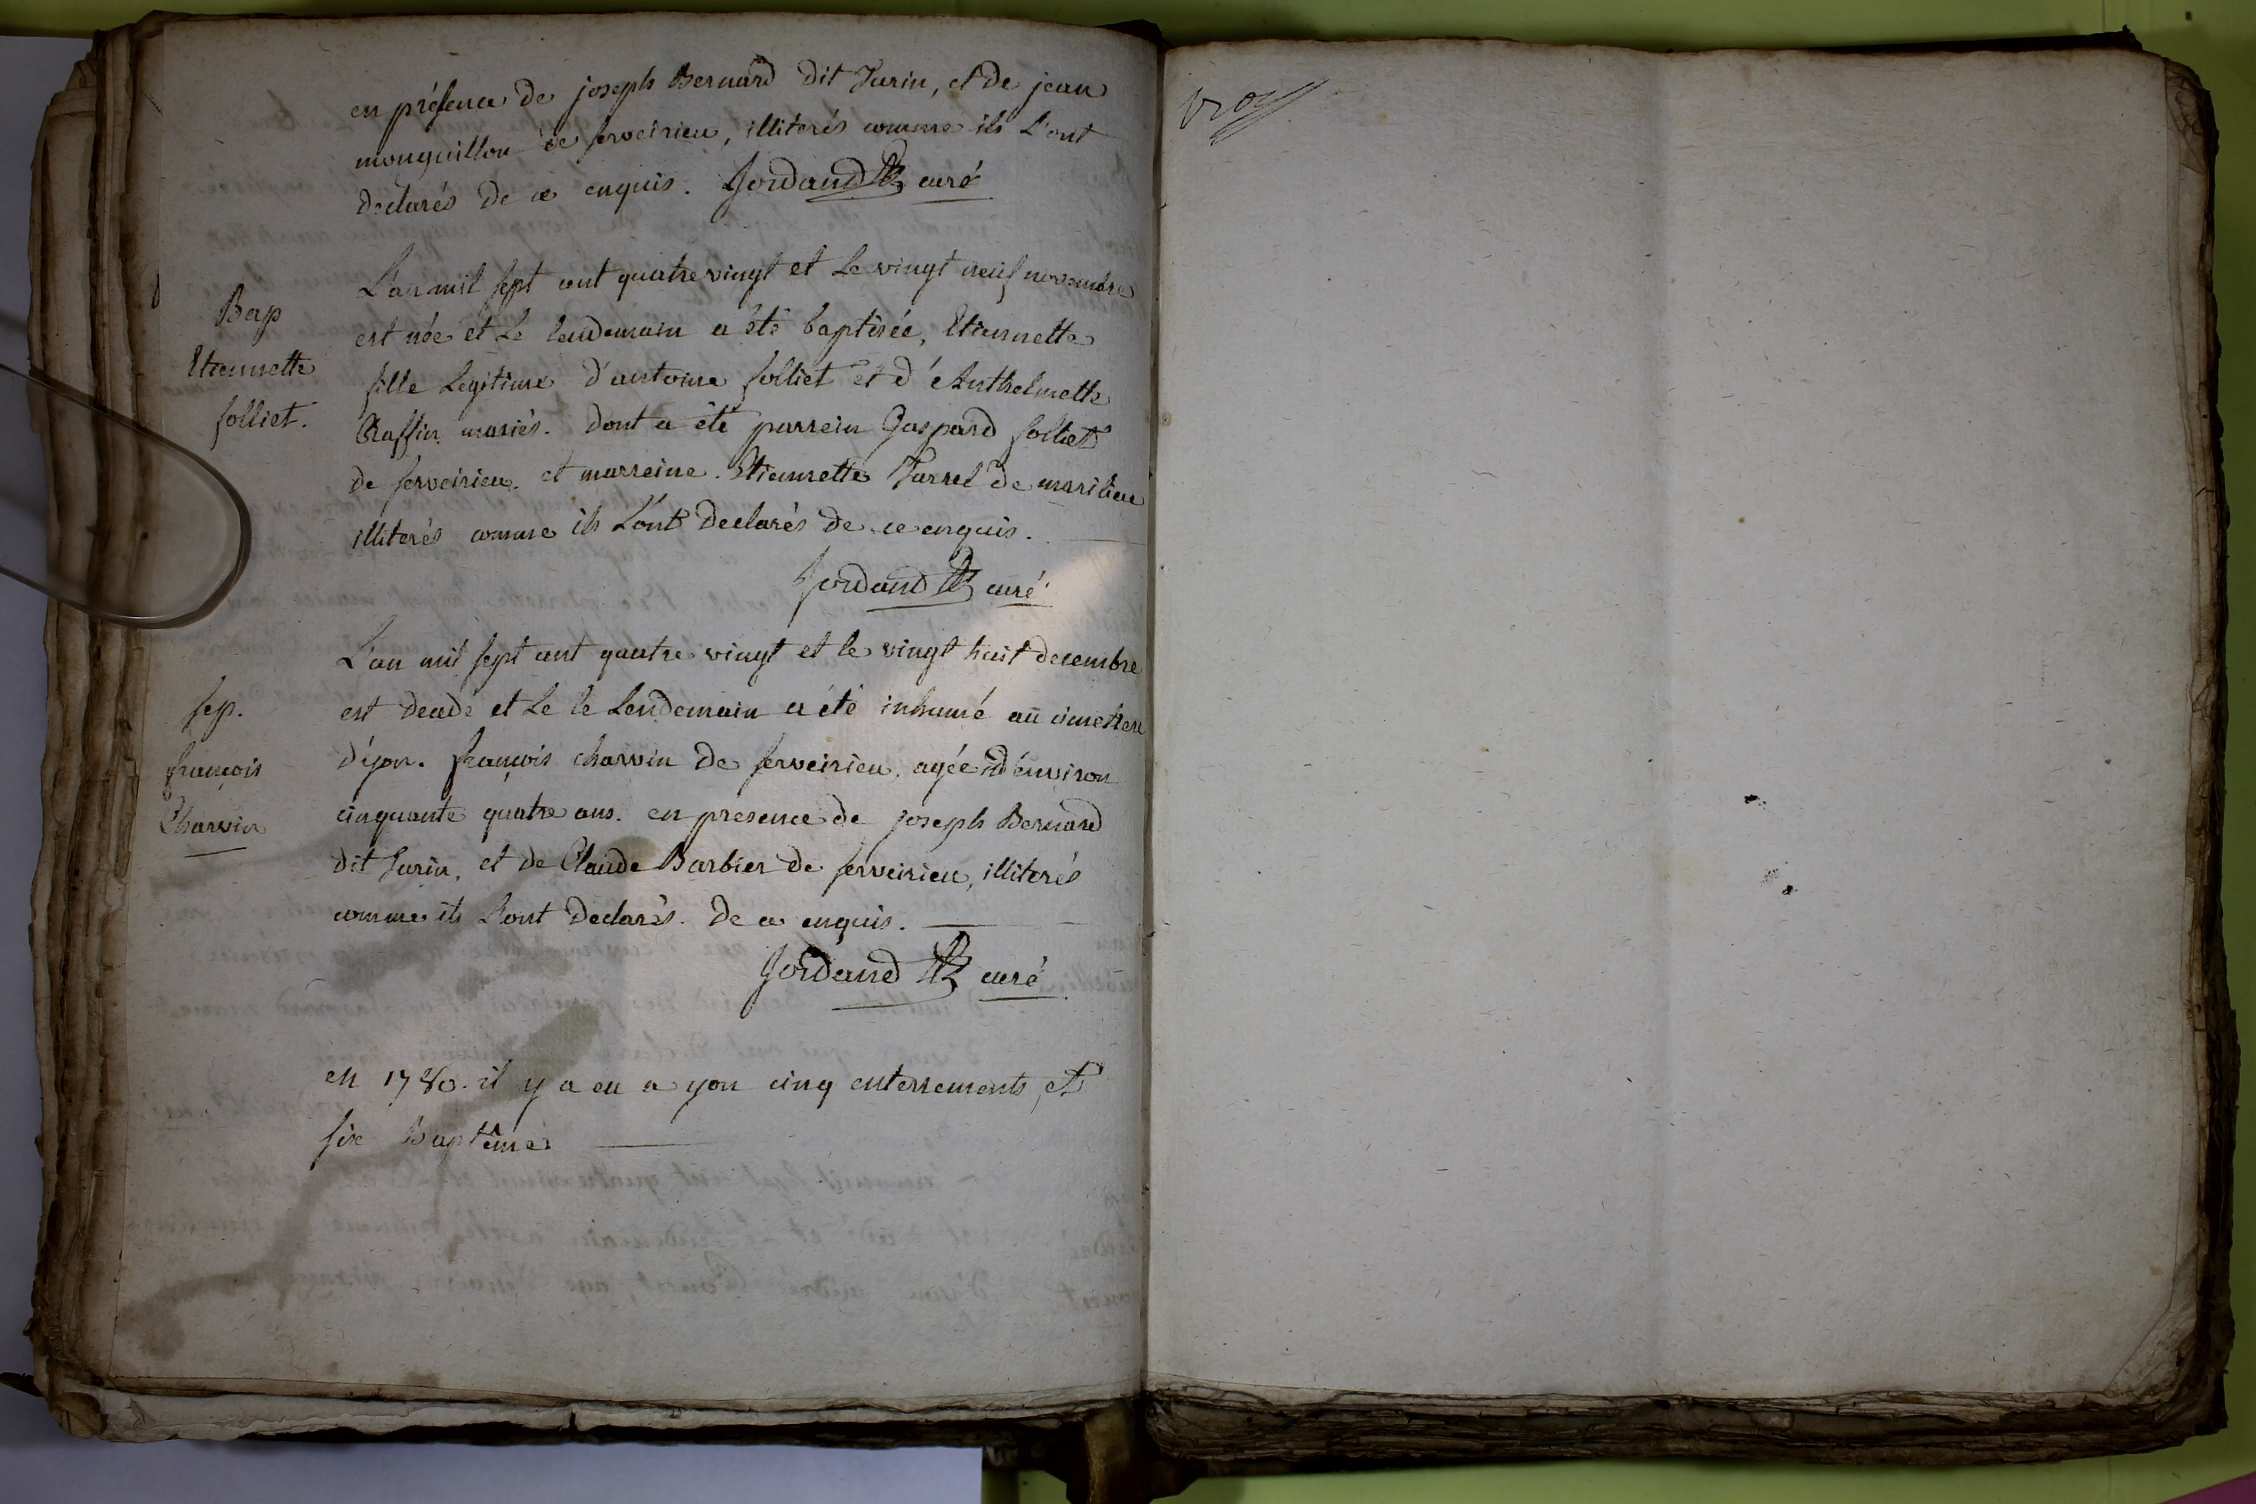 en présence de joseph Bernard dit Turin, et de jean
monguillon de serveirieu, illiterés comme ils l'ont
declarés de ce enquis. Jordand curé
L'an mil sept cent quatre vingt et Le vingt neuf novembre
Bap
est née et Le lendemain a été baptisée, Etiennette
Etiennette
fille Legitime d'antoine folliet et d'Anthelmette
folliet.
Raffin mariés. dont a été parrein Gaspard folliet
de serveirieu. et marreine. Etiennette Turrel de marilieu
illiterés comme ils L'ont declarés de ce enquis.
Jordand curé
L'an mil sept cent quatre vingt et le vingt huit decembre
sep.
est decedé et Le le Lendemain a été inhumé au cimettere
françois
d'yon. françois charvin de serveirieu. agée d'environ
Charvin
cinquante quatre ans. en presence de joseph Bernard
dit Turin, et de Claude Barbier de serveirieu, illiterés
comme ils L'ont declarés. de ce enquis.
Jordand curé
en 1780. il y a eu a yon cinq enterrements, et
six Baptême